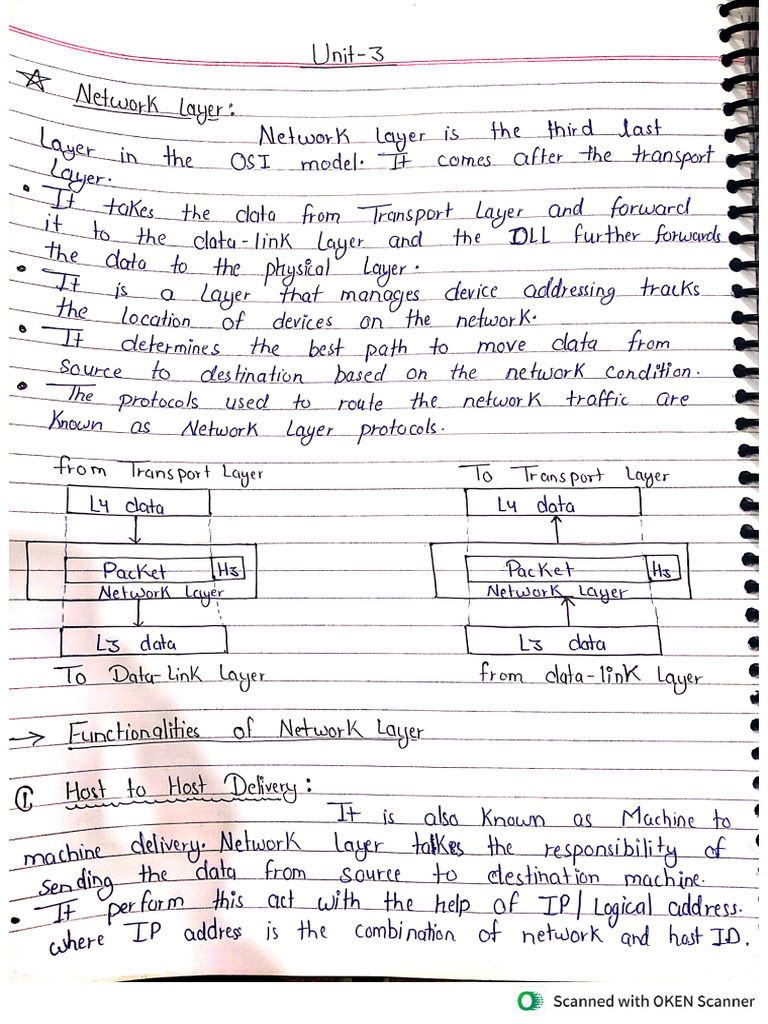 Unit-3
Network Layer:
Network Layer is the third last
Layer in the OSI model. It comes after the transport
Layer.
• It takes the data from Transport Layer and forward
it to the data-link Layer and the DLL further forwards
the data to the physical Layer.
• It is a Layer that manages device addressing tracks
the location of devices on the network.
• It determines the best path to move data from
source to destination based on the network condition.
• The protocols used to route the network traffic are
known as Network Layer protocols.
from Transport Layer
To Transport Layer
L4 data
L4 data
Packet H3
Packet H3
Network Layer
Network Layer
L3 data
L3 data
To Data-Link Layer
from data-link Layer
→ Functionalities of Network Layer
① Host to Host Delivery:
It is also known as Machine to
machine delivery. Network Layer takes the responsibility of
sending the data from source to destination machine.
• It perform this act with the help of IP/Logical address.
where IP address is the combination of network and host ID.
Scanned with OKEN Scanner